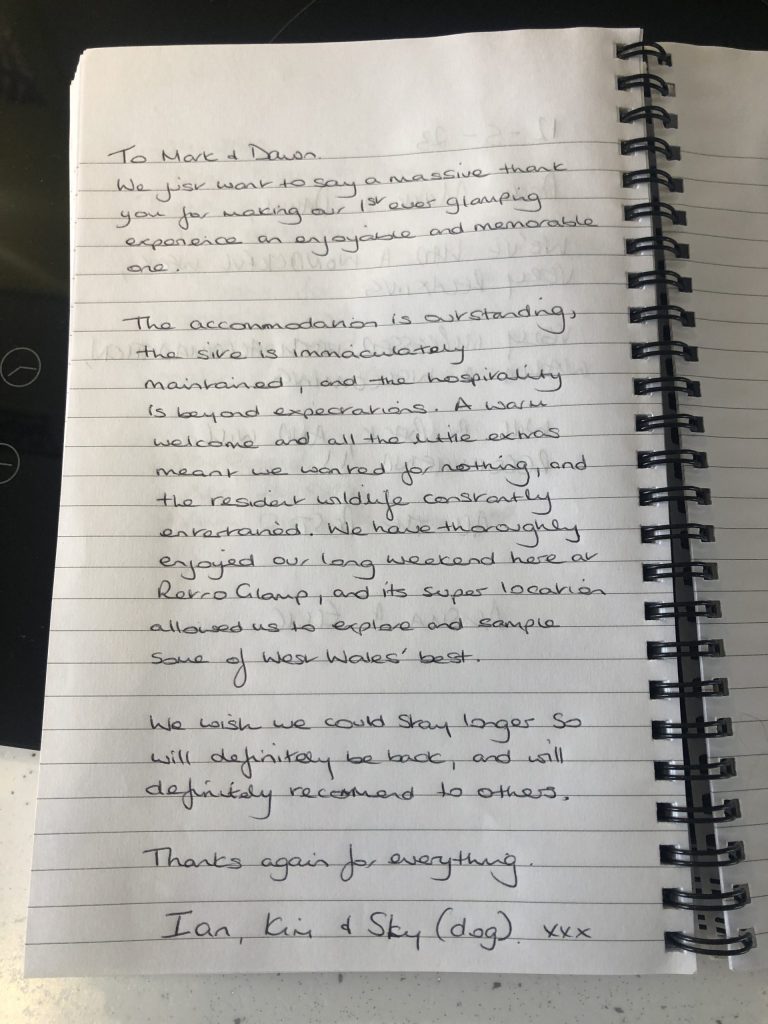 To Mark & Dawn.
We just want to say a massive thank
you for making our 1st ever glamping
experience an enjoyable and memorable
one.
The accommodation is outstanding,
the site is immaculately
maintained, and the hospitality
is beyond expectations. A warm
welcome and all the little extras
meant we wanted for nothing, and
the resident wildlife constantly
entertained. We have thoroughly
enjoyed our long weekend here at
Retro Glamp, and its super location
allowed us to explore and sample
some of West Wales' best.
We wish we could stay longer so
will definitely be back, and will
definitely recommend to others.
Thanks again for everything.
Ian, Kim & Sky (dog). xxx